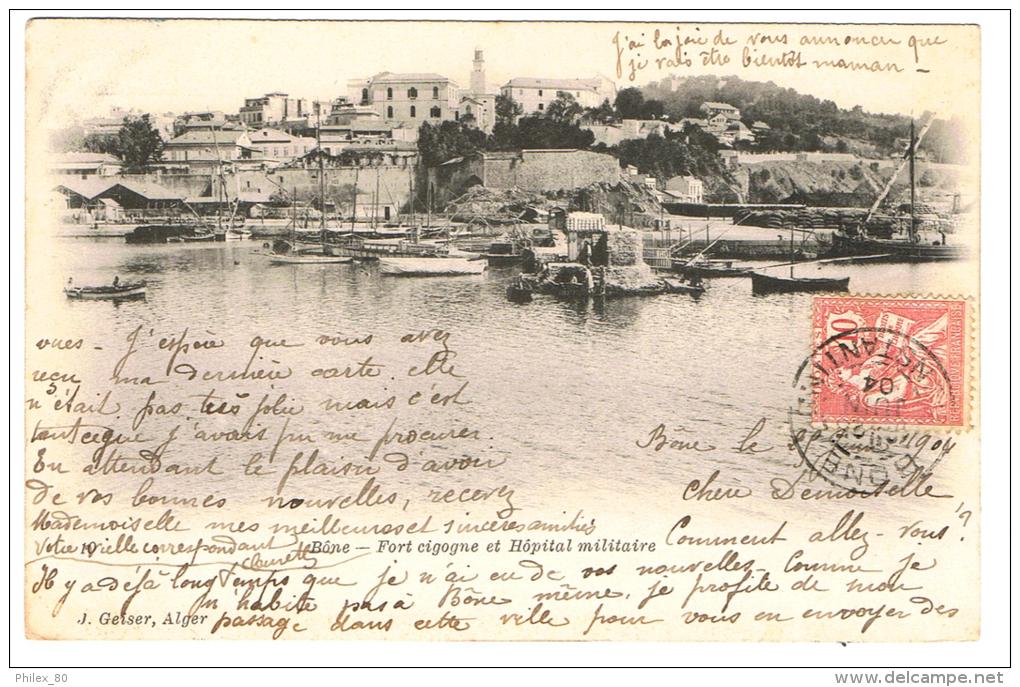 J'ai la joie de vous annoncer que
je vais être bientôt maman -
10
REPUBLIQUE FRANÇAISE
CONSTANTINE
04
BONE
Bône le 1904
Chère Demoiselle
Comment allez-vous?
Il y a déjà longtemps que je n'ai eu de vos nouvelles - Comme je
n'habite pas à Bône même, je profite de mon
passage dans cette ville pour vous en envoyer des
vues - J'espère que vous avez
reçu ma dernière carte elle
n'était pas très jolie mais c'est
tant ce que j'avais pu me procurer.
En attendant le plaisir d'avoir
de vos bonnes nouvelles, recevez
Mademoiselle mes meilleures et sincères amitiés
Votre vieille correspondant
10 Bône - Fort cigogne et Hôpital militaire
J. Geiser, Alger
Philex_80
www.delcampe.net